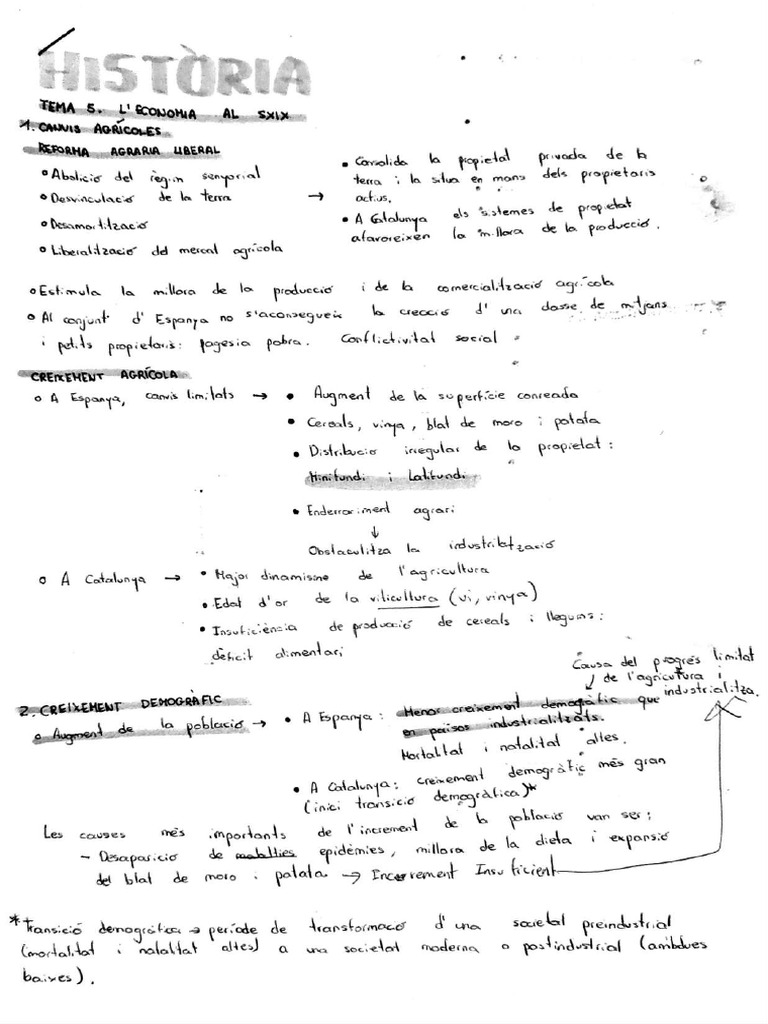 HISTÒRIA
TEMA 5. L'ECONOMIA AL SXIX
1. CANVIS AGRÍCOLES
REFORMA AGRARIA LIBERAL
o Abolició del règim senyorial
o Desvinculació de la terra →
o Desamortització
o Liberalització del mercat agrícola
• Consolida la propietat privada de la
terra i la situa en mans dels propietaris
actius.
• A Catalunya els sistemes de propietat
afavoreixen la millora de la producció.
o Estimula la millora de la producció i de la comercialització agrícola
o Al conjunt d'Espanya no s'aconsegueix la creació d'una classe de mitjans
i petits propietaris: pagesia pobra. Conflictivitat social
CREIXEMENT AGRÍCOLA
o A Espanya, canvis limitats → • Augment de la superfície conreada
• Cereals, vinya, blat de moro i patata
• Distribució irregular de la propietat:
Minifundi i Latifundi
• Enderroriment agrari
↓
Obstaculitza la industrialització
o A Catalunya → • Major dinamisme de l'agricultura
• Edat d'or de la viticultura (vi, vinya)
• Insuficiència de producció de cereals i llegums:
dèficit alimentari
Causa del progrés limitat
de l'agricutura i
industrialitza.
2. CREIXEMENT DEMOGRÀFIC
o Augment de la població → • A Espanya: Menor creixement demogràfic que
en països industrialitzats.
Mortalitat i natalitat altes.
• A Catalunya: creixement demogràfic més gran
(inici transició demogràfica)*
Les causes més importants de l'increment de la població van ser:
- Desaparició de malalties epidèmies, millora de la dieta i expansió
del blat de moro i patata → Increment Insuficient
*Transició demogràfica → període de transformació d'una societat preindustrial
(mortalitat i natalitat altes) a una societat moderna o postindustrial (ambdues
baixes).